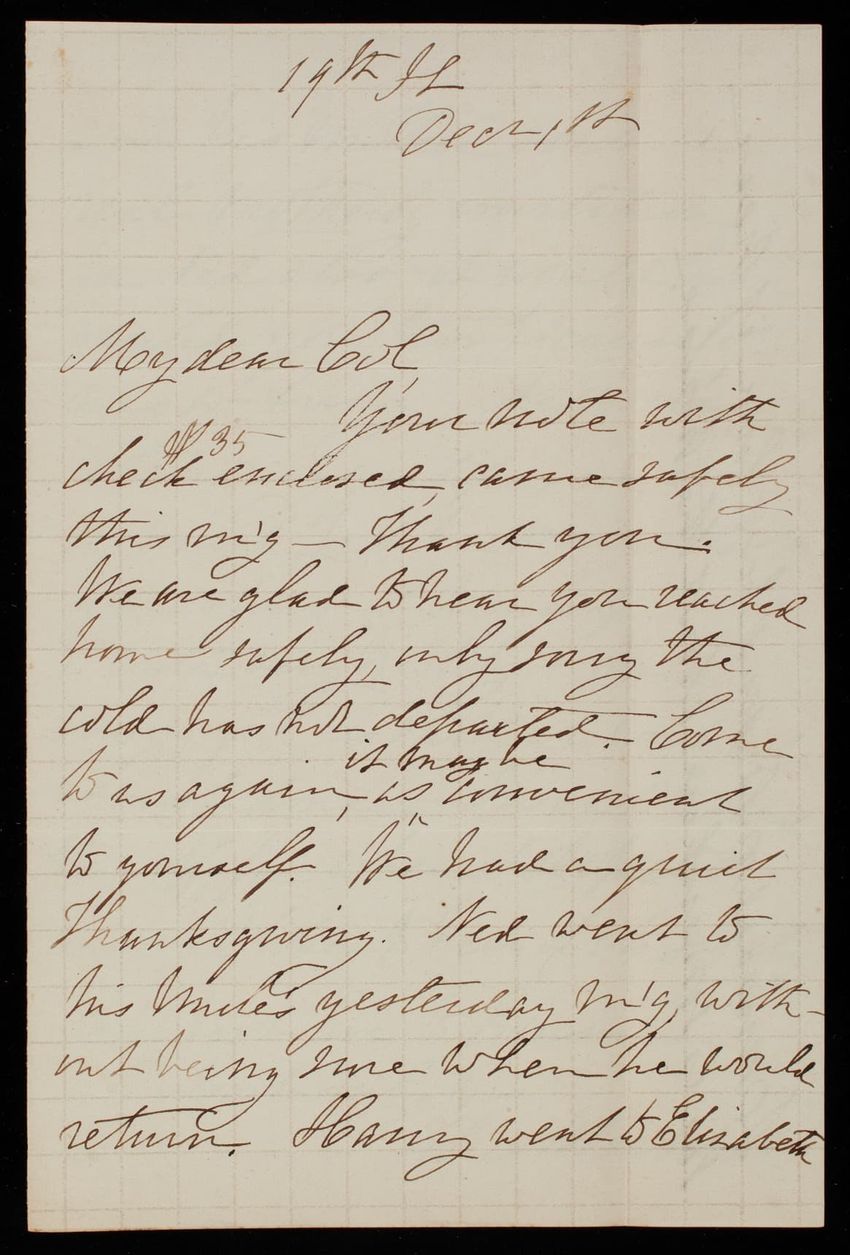 19th St
Decr, 1st
My dear Col,
Your note with
$35
check enclosed, came safely
this m'g — Thank you.
We are glad to hear you reached
home safely, only sorry the
cold has not departed. Come
it may be
to us again, as convenient
to yourself. We had a quiet
Thanksgiving. Ned went to
his Uncle's yesterday m'g, with-
out being sure when he would
return. Harry went to Elisabeth